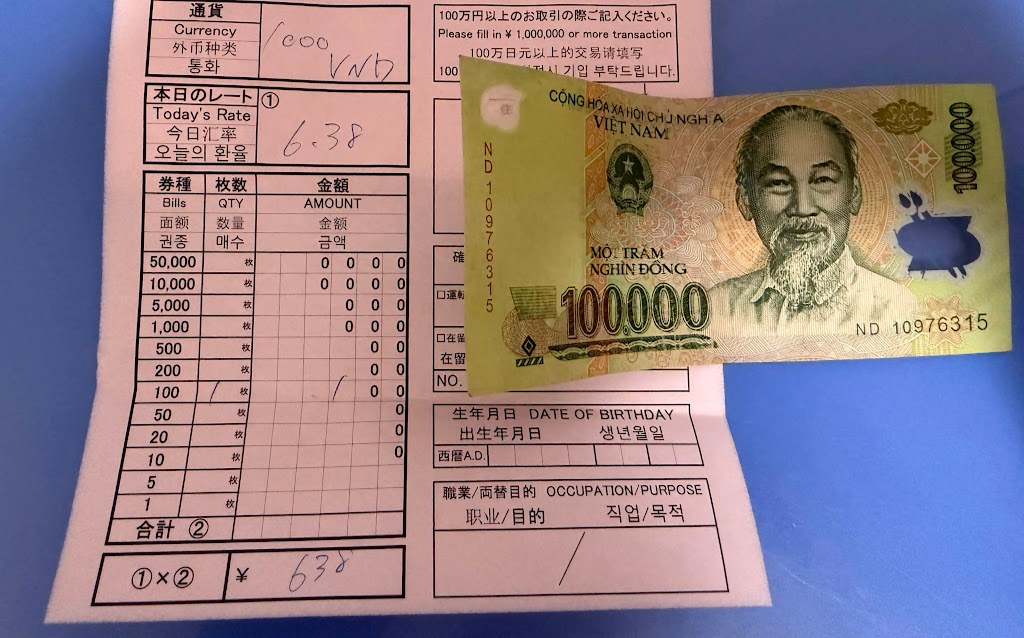 通貨
Currency
外币种类
통화
1000
VND
本日のレート
Today's Rate
今日汇率
오늘의 환율
①
6.38
券種 枚数 金額
Bills QTY AMOUNT
面额 数量 金额
권종 매수 금액
50,000 枚 0 0 0 0
10,000 枚 0 0 0 0
5,000 枚 0 0 0
1,000 枚 0 0 0
500 枚 0 0
200 枚 0 0
100 1 枚 1 0 0
50 枚 0
20 枚 0
10 枚 0
5 枚
1 枚
合計 ②
①×② ¥ 638
100万円以上のお取引の際ご記入ください。
Please fill in ¥ 1,000,000 or more transaction
100万日元以上的交易请填写
100 기입 부탁드립니다.
確
□運転
□在留
在留
NO.
生年月日 DATE OF BIRTHDAY
出生年月日 생년월일
西暦A.D.
職業/両替目的 OCCUPATION/PURPOSE
职业/目的 직업/목적
CỘNG HÒA XÃ HỘI CHỦ NGHĨA
VIỆT NAM
100000
ND 10976315
MỘT TRĂM
NGHÌN ĐỒNG
100.000
ND 10976315